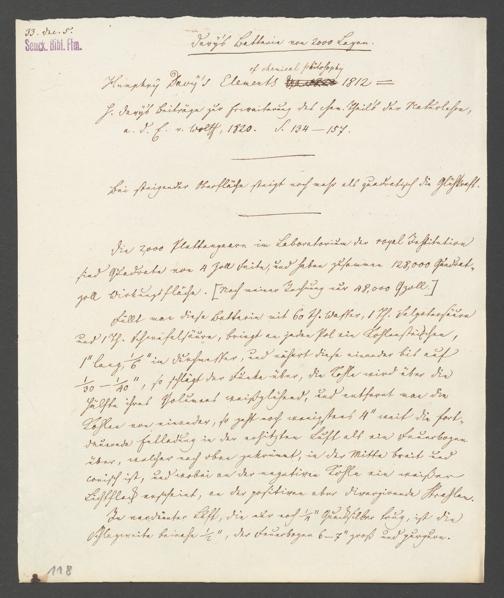 33. Dec. 5.
Senck. Bibl. Ffm.
Davy's Batterie von 2000 Lagen.
of chemical philosophy
Humphry Davy's Elements 1812 =
H. Davy's Beiträge zur Erweiterung des chem. Theils der Naturlehre,
a. d. E. v. Wolff, 1820. S. 134–157.
Bei steigender Oberfläche steigt noch mehr als quadratisch die Glühkraft.
Die 2000 Plattenpaare im Laboratorium der royal Institution
sind Quadrate von 4 Zoll Seite, und haben zusammen 128,000 Quadrat-
zoll Wirkungsfläche. [Nach meiner Rechnung nur 48,000 Qzoll.]
Füllt man diese Batterie mit 60 Th. Wasser, 1 Th. Salpetersäure
und 1 Th. Schwefelsäure, bringt an jeden Pol ein Kohlenstückchen,
1" lang, 1/6" im Durchmesser, und nähert diese einander bis auf
1/30 – 1/40", so schlägt der Funke über, die Kohle wird über die
Hälfte ihres Volumens weißglühend, und entfernt man die
Kohlen von einander, so geht noch wenigstens 4" weit die fort-
dauernde Entladung in der erhitzten Luft als ein Feuerbogen
über, welcher nach oben gekrümmt, in der Mitte breit und
conisch ist, und wobei an der negativen Kohle ein weißer
Lichtfleck erscheint, an der positiven aber divergirende Strahlen.
In verdünnter Luft, die nur noch 1/4" Quecksilber trug, ist die
Schlagweite beinahe 1/2", der Feuerbogen 6–7" groß und purpurn.
118